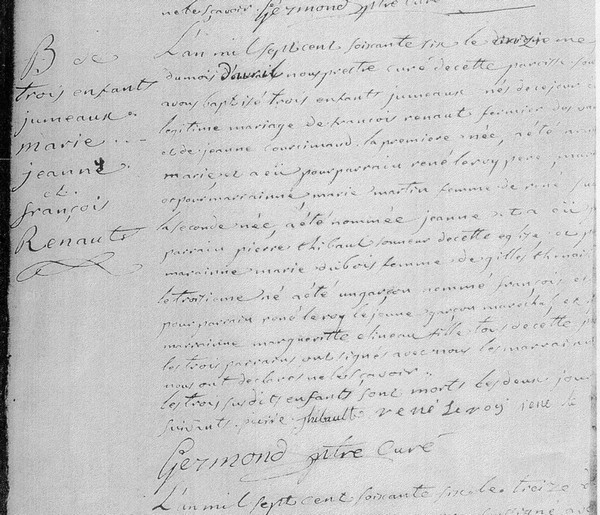 ne le sçavoir. Germond ptre Curé
B de
trois enfants
jumeaux.
marie.
jeanne
et
françois
Renault
L'an mil sept cent soixante six le
du mois d'avril nous prestre curé de cette parroisse
avons baptisé trois enfants jumeaux nés de ce jour
legitime mariage de françois renaut fermier des
et de jeanne la premiere née, a été
marie et a eü pour parrain rené leroy pere
et pour marrainne marie martin femme de rené
la seconde née, a été nommée jeanne et a eü
parrain pierre thibaut sonneur de cette eglize et
marainne marie dubois femme de gilles
le troisieme né a été un garçon nommé françois et
pour parrain rené leroy le jeune garçon marechal et
marrainne margueritte elineau fille tous de cette
les trois parrains ont signés avec nous les
nous ont declarés ne le sçavoir.
les trois susdits enfants sont morts les deux jours
suivants. pierre thibault rené Le roy rené le
Germond ptre Curé
L'an mil sept cent soixante six le treize